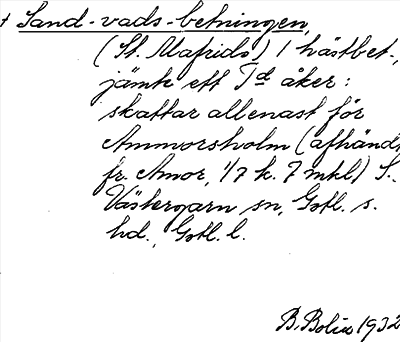 + Sand-vads-betningen,
(St. Mafrids) 1 hästbet.,
jämte ett Td åker:
skattar allenast för
Ammorsholm (afhändt
fr. Amor, 1/7 k. 7 mkl) S..
Västergarn sn, Gotl. s.
hd., Gotl. l.
B. Bolin 1932